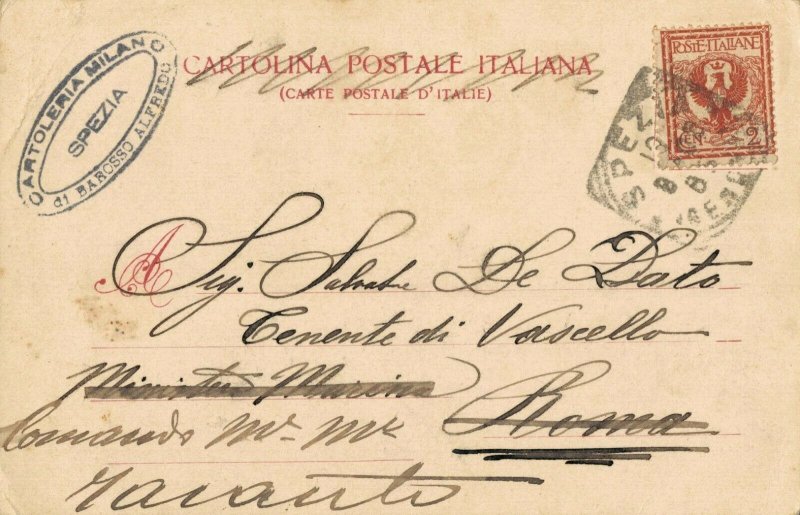 CARTOLINA POSTALE ITALIANA
(CARTE POSTALE D'ITALIE)
CARTOLERIA MILANO
SPEZIA
di BAROSSO ALFREDO
POSTE·ITALIANE
CEN. 2
SPEZIA
A Sig. Salvatre De Dato
Tenente di Vascello
Ministero Marina
Roma
Comando Me. Me.
Taranto